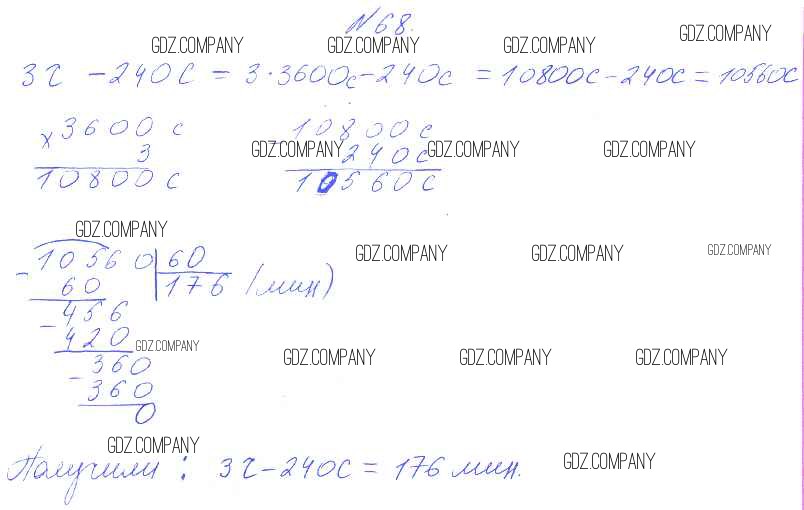 №68.
GDZ.COMPANY GDZ.COMPANY GDZ.COMPANY GDZ.COMPANY
3ч - 240с = 3·3600с - 240с = 10800с - 240с = 10560с
× 3600 с
3
10800 с
- 10800с
240с
10560с
GDZ.COMPANY GDZ.COMPANY GDZ.COMPANY
GDZ.COMPANY
- 10560 | 60
60 176 (мин)
- 456
420
- 360
360
0
GDZ.COMPANY GDZ.COMPANY GDZ.COMPANY
GDZ.COMPANY GDZ.COMPANY GDZ.COMPANY GDZ.COMPANY
GDZ.COMPANY
Получили: 3ч - 240с = 176 мин.
GDZ.COMPANY